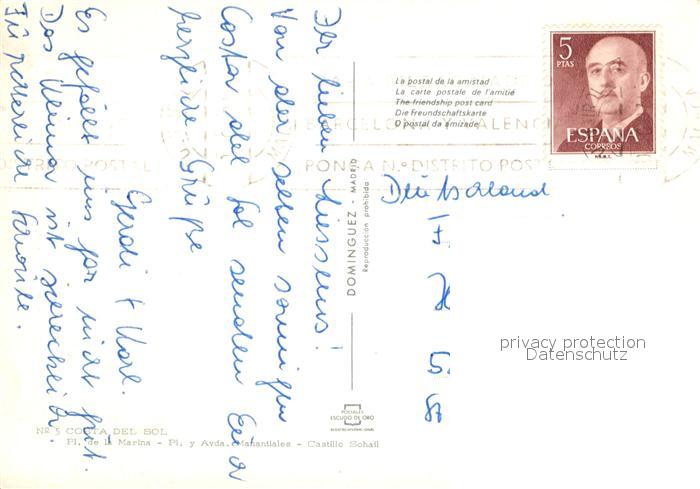 Ihr lieben
Von der schönen sonnigen
Costa del Sol senden Euch
herzliche Grüße
Gerdi + Karl.
Es gefällt uns gar nicht gut.
Das Klima ist schrecklich.
Fürchterliche
5
PTAS
ESPAÑA
CORREOS
La postal de la amistad
La carte postale de l'amitié
The friendship post card
Die Freundschaftskarte
O postal da amizade
BARCELONA VALENCI
DISTRITO POSTAL
PONGA N.º DISTRITO POST
Deutschland
DOMINGUEZ - MADRID
Reproducción prohibida
privacy protection
Datenschutz
POSTALES
ESCUDO DE ORO
Nº 5 COSTA DEL SOL
Pl. de la Marina - Pl. y Avda. Manantiales - Castillo Sohail